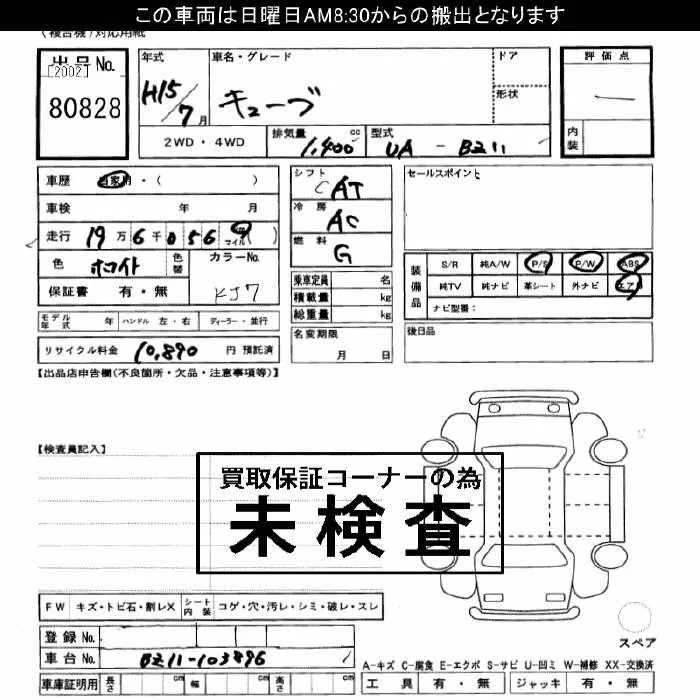 この車両は日曜日AM8:30からの搬出となります
(複合機)対応用紙
出品No.
[2002]
80828
年式 H15/7月
車名・グレード キューブ
ドア
形状
評価点
内装
2WD・4WD
排気量 1,400 cc
型式 UA-BZ11
車歴 自家用・( )
車検 年 月
走行 19万6千056 マイル( )
色 ホワイト 色替 カラーNo. KJ7
保証書 有・無
シフト CAT
冷房 AC
燃料 G
乗車定員 名
積載量 kg
総重量 kg
名変期限 月 日
セールスポイント
装備品
S/R 純A/W P/S P/W ABS
純TV 純ナビ 革シート 外ナビ エアB
ナビ型番:
後日品
モデル年式 年 ハンドル 左・右 ディーラー・並行
リサイクル料金 10,890 円 預託済
【出品店申告欄(不良箇所・欠品・注意事項等)】
【検査員記入】
買取保証コーナーの為
未検査
FW キズ・トビ石・割レX シート内装 コゲ・穴・汚レ・シミ・破レ・スレ
登録No.
車台No. BZ11-103896
車庫証明用 長さ cm 幅 cm 高さ cm
スペア
A-キズ C-腐食 E-エクボ S-サビ U-凹ミ W-補修 XX-交換済
工具 有・無 ジャッキ 有・無